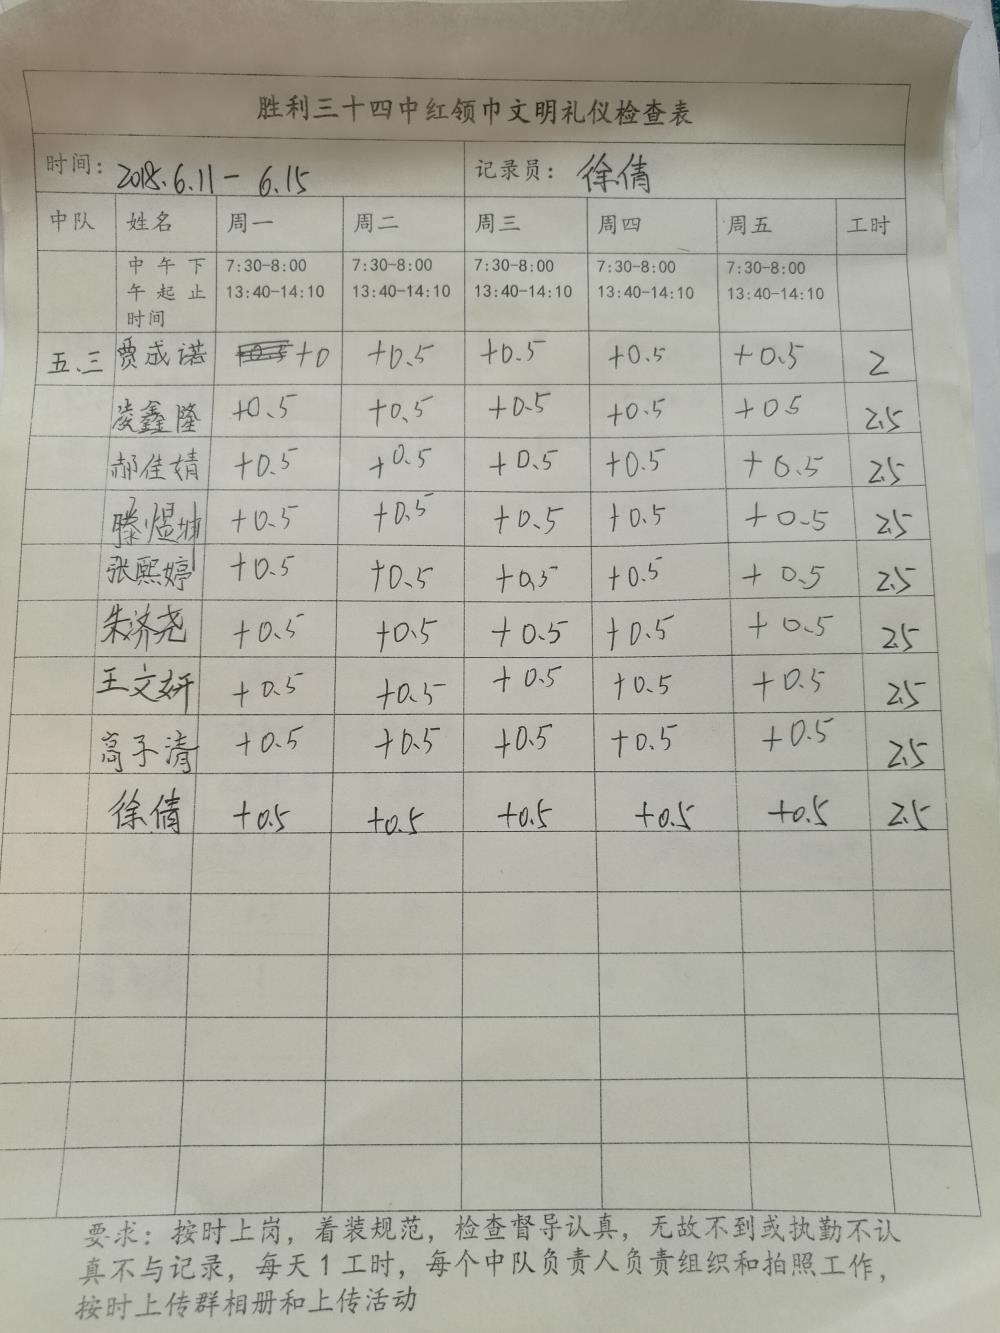 胜利三十四中红领巾文明礼仪检查表
时间: 2018.6.11 - 6.15 记录员: 徐倩
中队 姓名 周一 周二 周三 周四 周五 工时
中午下 7:30-8:00 7:30-8:00 7:30-8:00 7:30-8:00 7:30-8:00
午起止 13:40-14:10 13:40-14:10 13:40-14:10 13:40-14:10 13:40-14:10
时间
五.三 贾成诺 +0 +0.5 +0.5 +0.5 +0.5 2
凌鑫隆 +0.5 +0.5 +0.5 +0.5 +0.5 2.5
郝佳婧 +0.5 +0.5 +0.5 +0.5 +0.5 2.5
滕煜坤 +0.5 +0.5 +0.5 +0.5 +0.5 2.5
张熙婷 +0.5 +0.5 +0.5 +0.5 +0.5 2.5
朱济尧 +0.5 +0.5 +0.5 +0.5 +0.5 2.5
王文妍 +0.5 +0.5 +0.5 +0.5 +0.5 2.5
高子清 +0.5 +0.5 +0.5 +0.5 +0.5 2.5
徐倩 +0.5 +0.5 +0.5 +0.5 +0.5 2.5
要求: 按时上岗, 着装规范, 检查督导认真, 无故不到或执勤不认
真不与记录, 每天1工时, 每个中队负责人负责组织和拍照工作,
按时上传群相册和上传活动